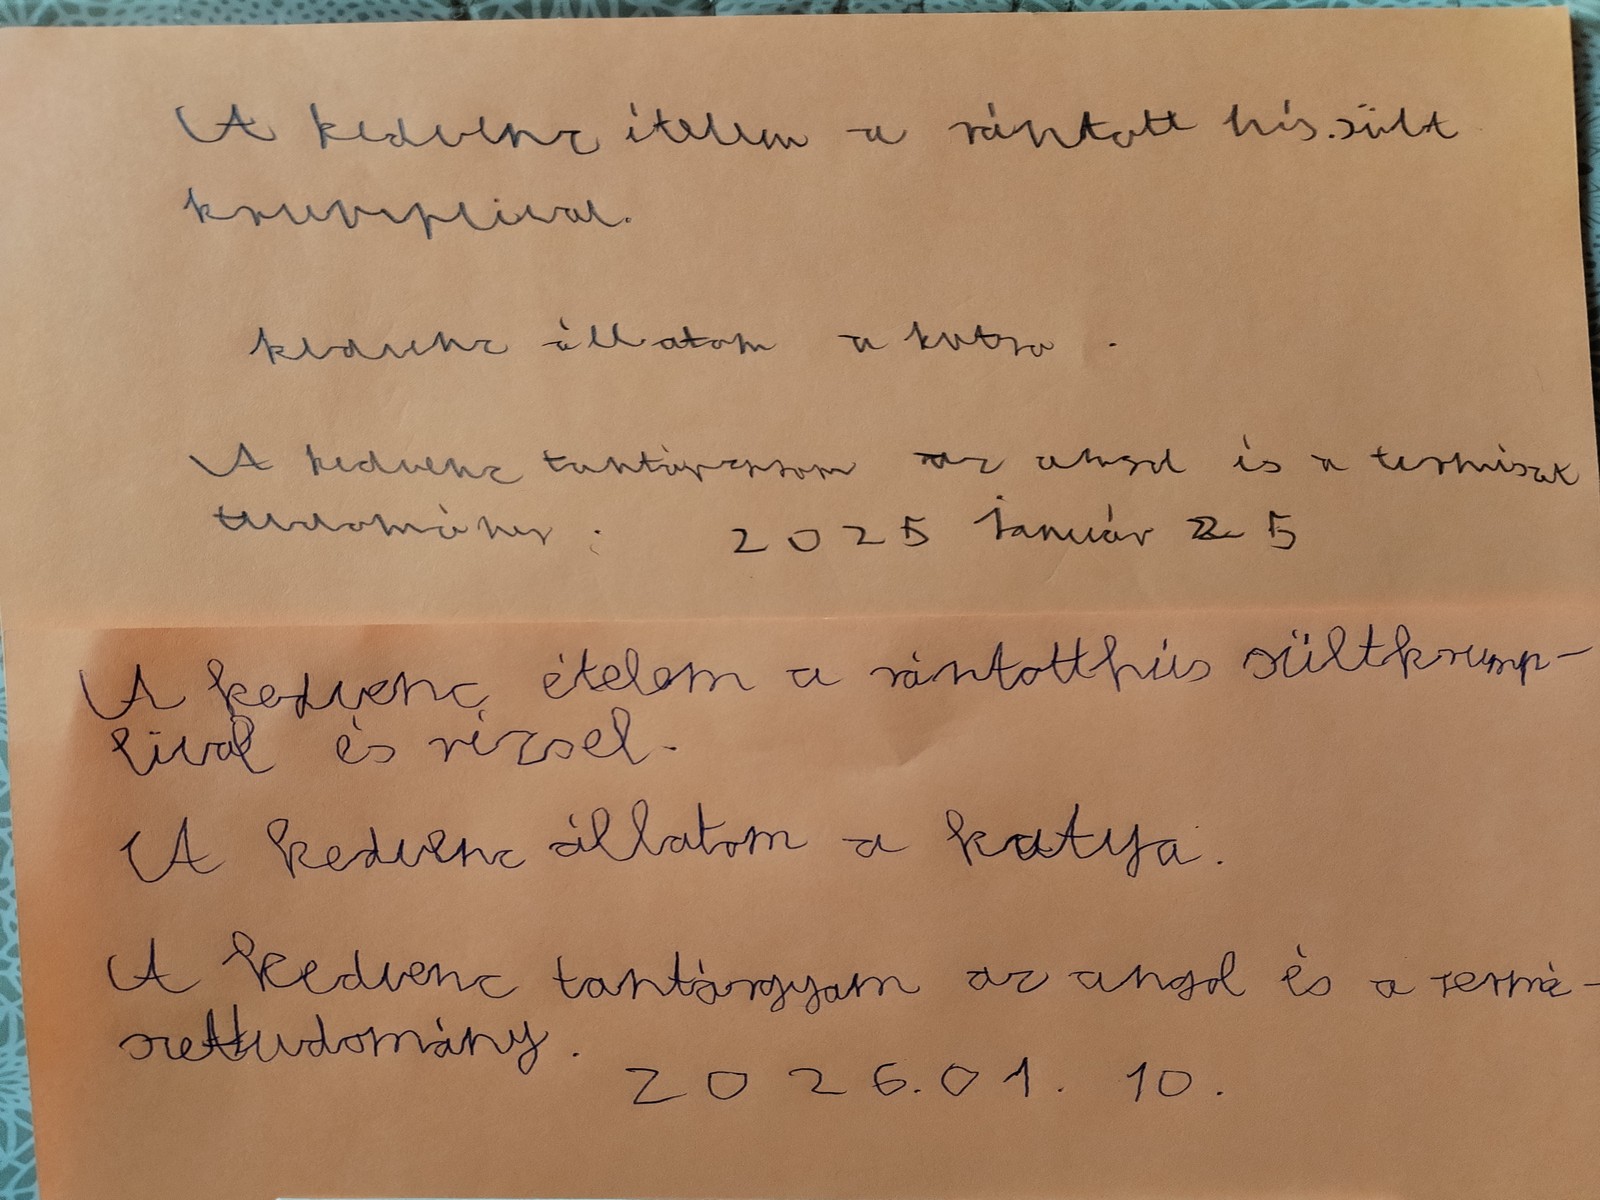 A kedvenc ételem a rántott hús.sült
krumplival.
kedvenc állatom a kutya .
A kedvenc tantárgyam az angol és a termiszet
tudomány . 2025 Január 25
A kedvenc ételem a rántotthús sültkrump-
lival és rizsel.
A kedvenc állatom a kutya.
A kedvenc tantárgyam az angol és a termé-
szettudomány.
2026.01. 10.